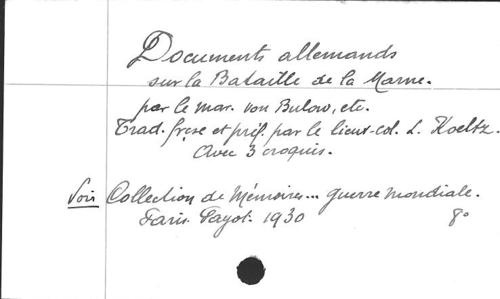 Documents allemands
sur la Bataille de la Marne.
par le mar. von Bulow, etc.
Trad. frçse et préf. par le lieut-col. L. Koeltz.
Avec 3 croquis.
Voir Collection de Mémoires... guerre mondiale.
Paris. Payot. 1930 8º